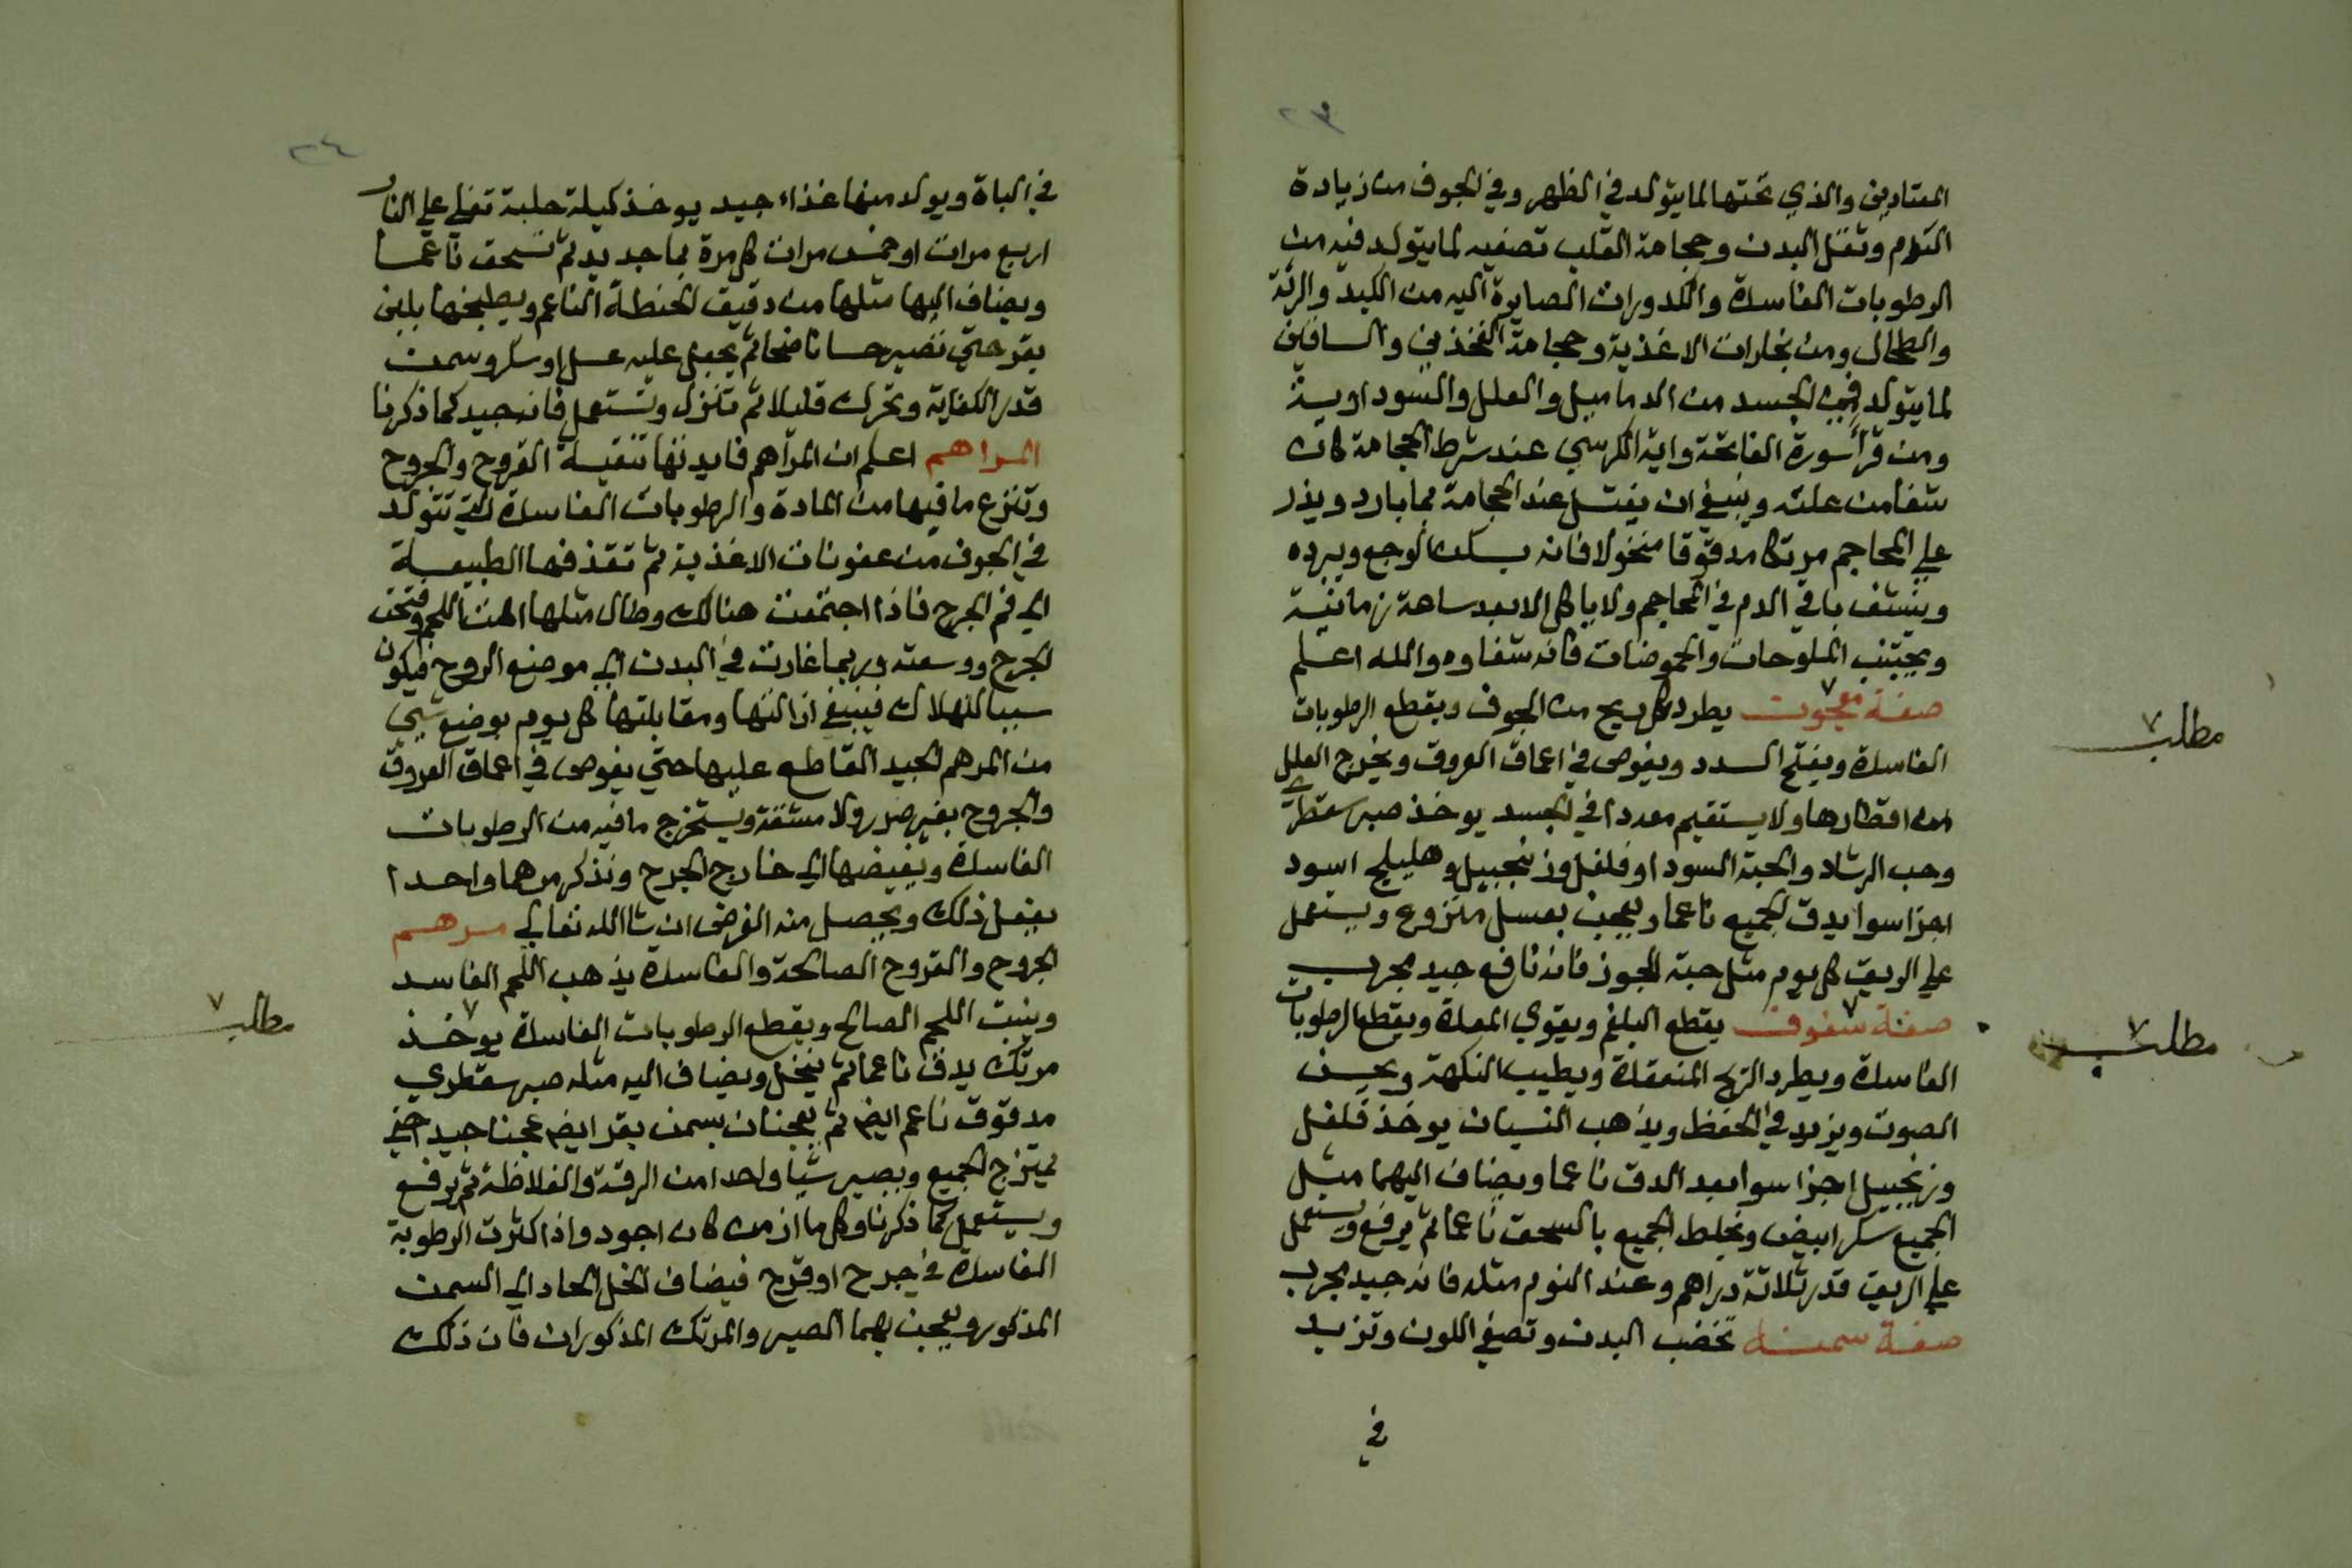 ٢٣
المعتادين والذي تحتها لما يتولد في الظهر وفي الجوف من زيادة
الدم وثقل البدن وحجامة القلب تصفيه لما يتولد فيه من
الرطوبات الفاسدة والكدورات الصايرة اليه من الكبد والرئة
والطحال ومن بخارات الاغذية وحجامة الفخذين والساقين
لما يتولد في الجسد من الدماميل والعلل والسوداوية
ومن قرأ سورة الفاتحة واية الكرسي عند شرط الحجامة كانت
شفا من علته وينبغي ان يغتسل عند الحجامة بما بارد ويذر
علي المحاجم مرتكا مدقوقا منخولا فانه يسكن الوجع ويبرده
وينشف باقي الدم في المحاجم ولا ياكل الا بعد ساعة زمانية
ويجتنب الملوحات والحموضات فانه شفاوه والله اعلم
صفة معجون يطرد كل ريح من الجوف ويقطع الرطوبات
مطلب
الفاسدة ويفتح السدد ويغوص في اعماق العروق ويخرج العلل
من اقطارها ولا يستقيم معه دا في الجسد يوخذ صبر سقطري
وحب الرشاد والحبة السودا وفلفل وزنجبيل وهليلج اسود
اجزا سوا يدق الجميع ناعما ويعجن بعسل منزوع ويستعمل
علي الريق كل يوم مثل حبة الجوز فانه نافع جيد مجرب
صفة سفوف يقطع البلغم ويقوي المعدة ويقطع الرطوبات
مطلب
الفاسدة ويطرد الريح المنعقدة ويطيب النكهة ويحسن
الصوت ويزيد في الحفظ ويذهب النسيان يوخذ فلفل
وزنجبيل اجزا سوا بعد الدق ناعما ويضاف اليهما مثل
الجميع سكر ابيض ويخلط الجميع بالسحق ناعما ثم يرفع ويستعمل
علي الريق قدر ثلاثة دراهم وعند النوم مثله فانه جيد مجرب
صفة سمنه تخضب البدن وتصفي اللون وتزيد
في
٢٤
في الباة ويولد منها غذاء جيد يوخذ كيلة حلبة تغلي علي النار
اربع مرات او خمس مرات كل مرة بما جديد ثم تسحق ناعما
ويضاف اليها مثلها من دقيق الحنطة الناعم ويطبخها بلبن
بقر حتي تصير حسا ناضجا ثم يجعل عليه عسل او سكر وسمن
قدر الكفاية وتحرك قليلا ثم تنزل وتستعمل فانه جيد كما ذكرنا
المراهم اعلم ان المراهم فايدتها تنقية القروح والجروح
وتنزع ما فيها من المادة والرطوبات الفاسدة التي تتولد
في الجوف من عفونات الاغذية ثم تقذفها الطبيعة
الي فم الجرح فاذا اجتمعت هنالك وطال مثلها اللحم وفتحت
الجرح ووسعته وربما غارت في البدن الي موضع الروح فيكون
سببا للهلاك فينبغي ازالتها ومقابلتها كل يوم بوضع شي
من المرهم الجيد القاطع عليها حتي يغوص في اعماق العروق
والجروح بغير ضرر ولا مشقة ويستخرج ما فيه من الرطوبات
الفاسدة ويفيضها الي خارج الجرح ونذكر مرهما واحدا
يفعل ذلك ويحصل منه الغرض ان شا الله تعالي مرهم
الجروح والقروح الصالحة والفاسدة يذهب اللحم الفاسد
وينبت اللحم الصالح ويقطع الرطوبات الفاسدة يوخذ
مطلب
مرتك يدق ناعما ثم ينخل ويضاف اليه مثله صبر سقطري
مدقوق ناعم ايضا ثم يعجنان بسمن بقر ايضا عجنا جيدا حتي
يمتزج الجميع ويصير شيا واحدا من الرقة والغلاظة ثم يرفع
ويستعمل كما ذكرنا وكل ما ازمن كان اجود واذا كثرت الرطوبة
الفاسدة في جرح او قرح فيضاف الخل الحاد الي السمن
المذكور ويعجن بهما الصبر والمرتك المذكوران فان ذلك